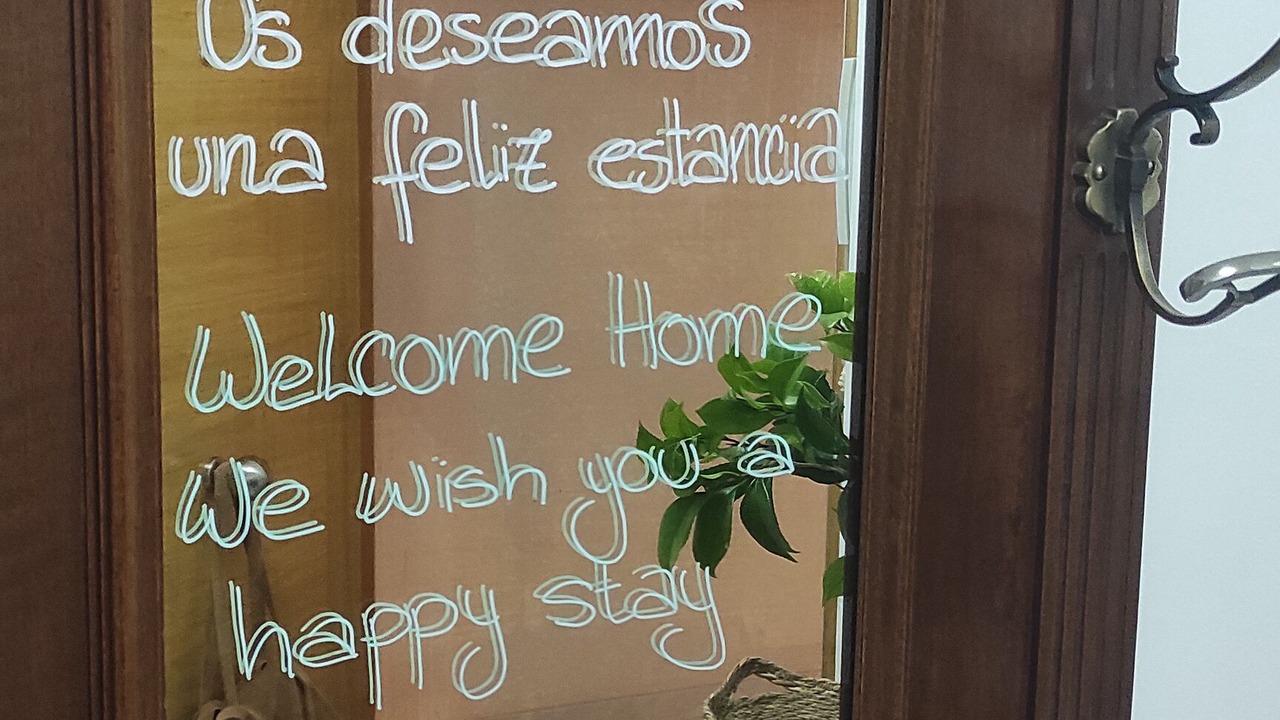 Os deseamos
una feliz estancia
Welcome Home
We wish you a
happy stay